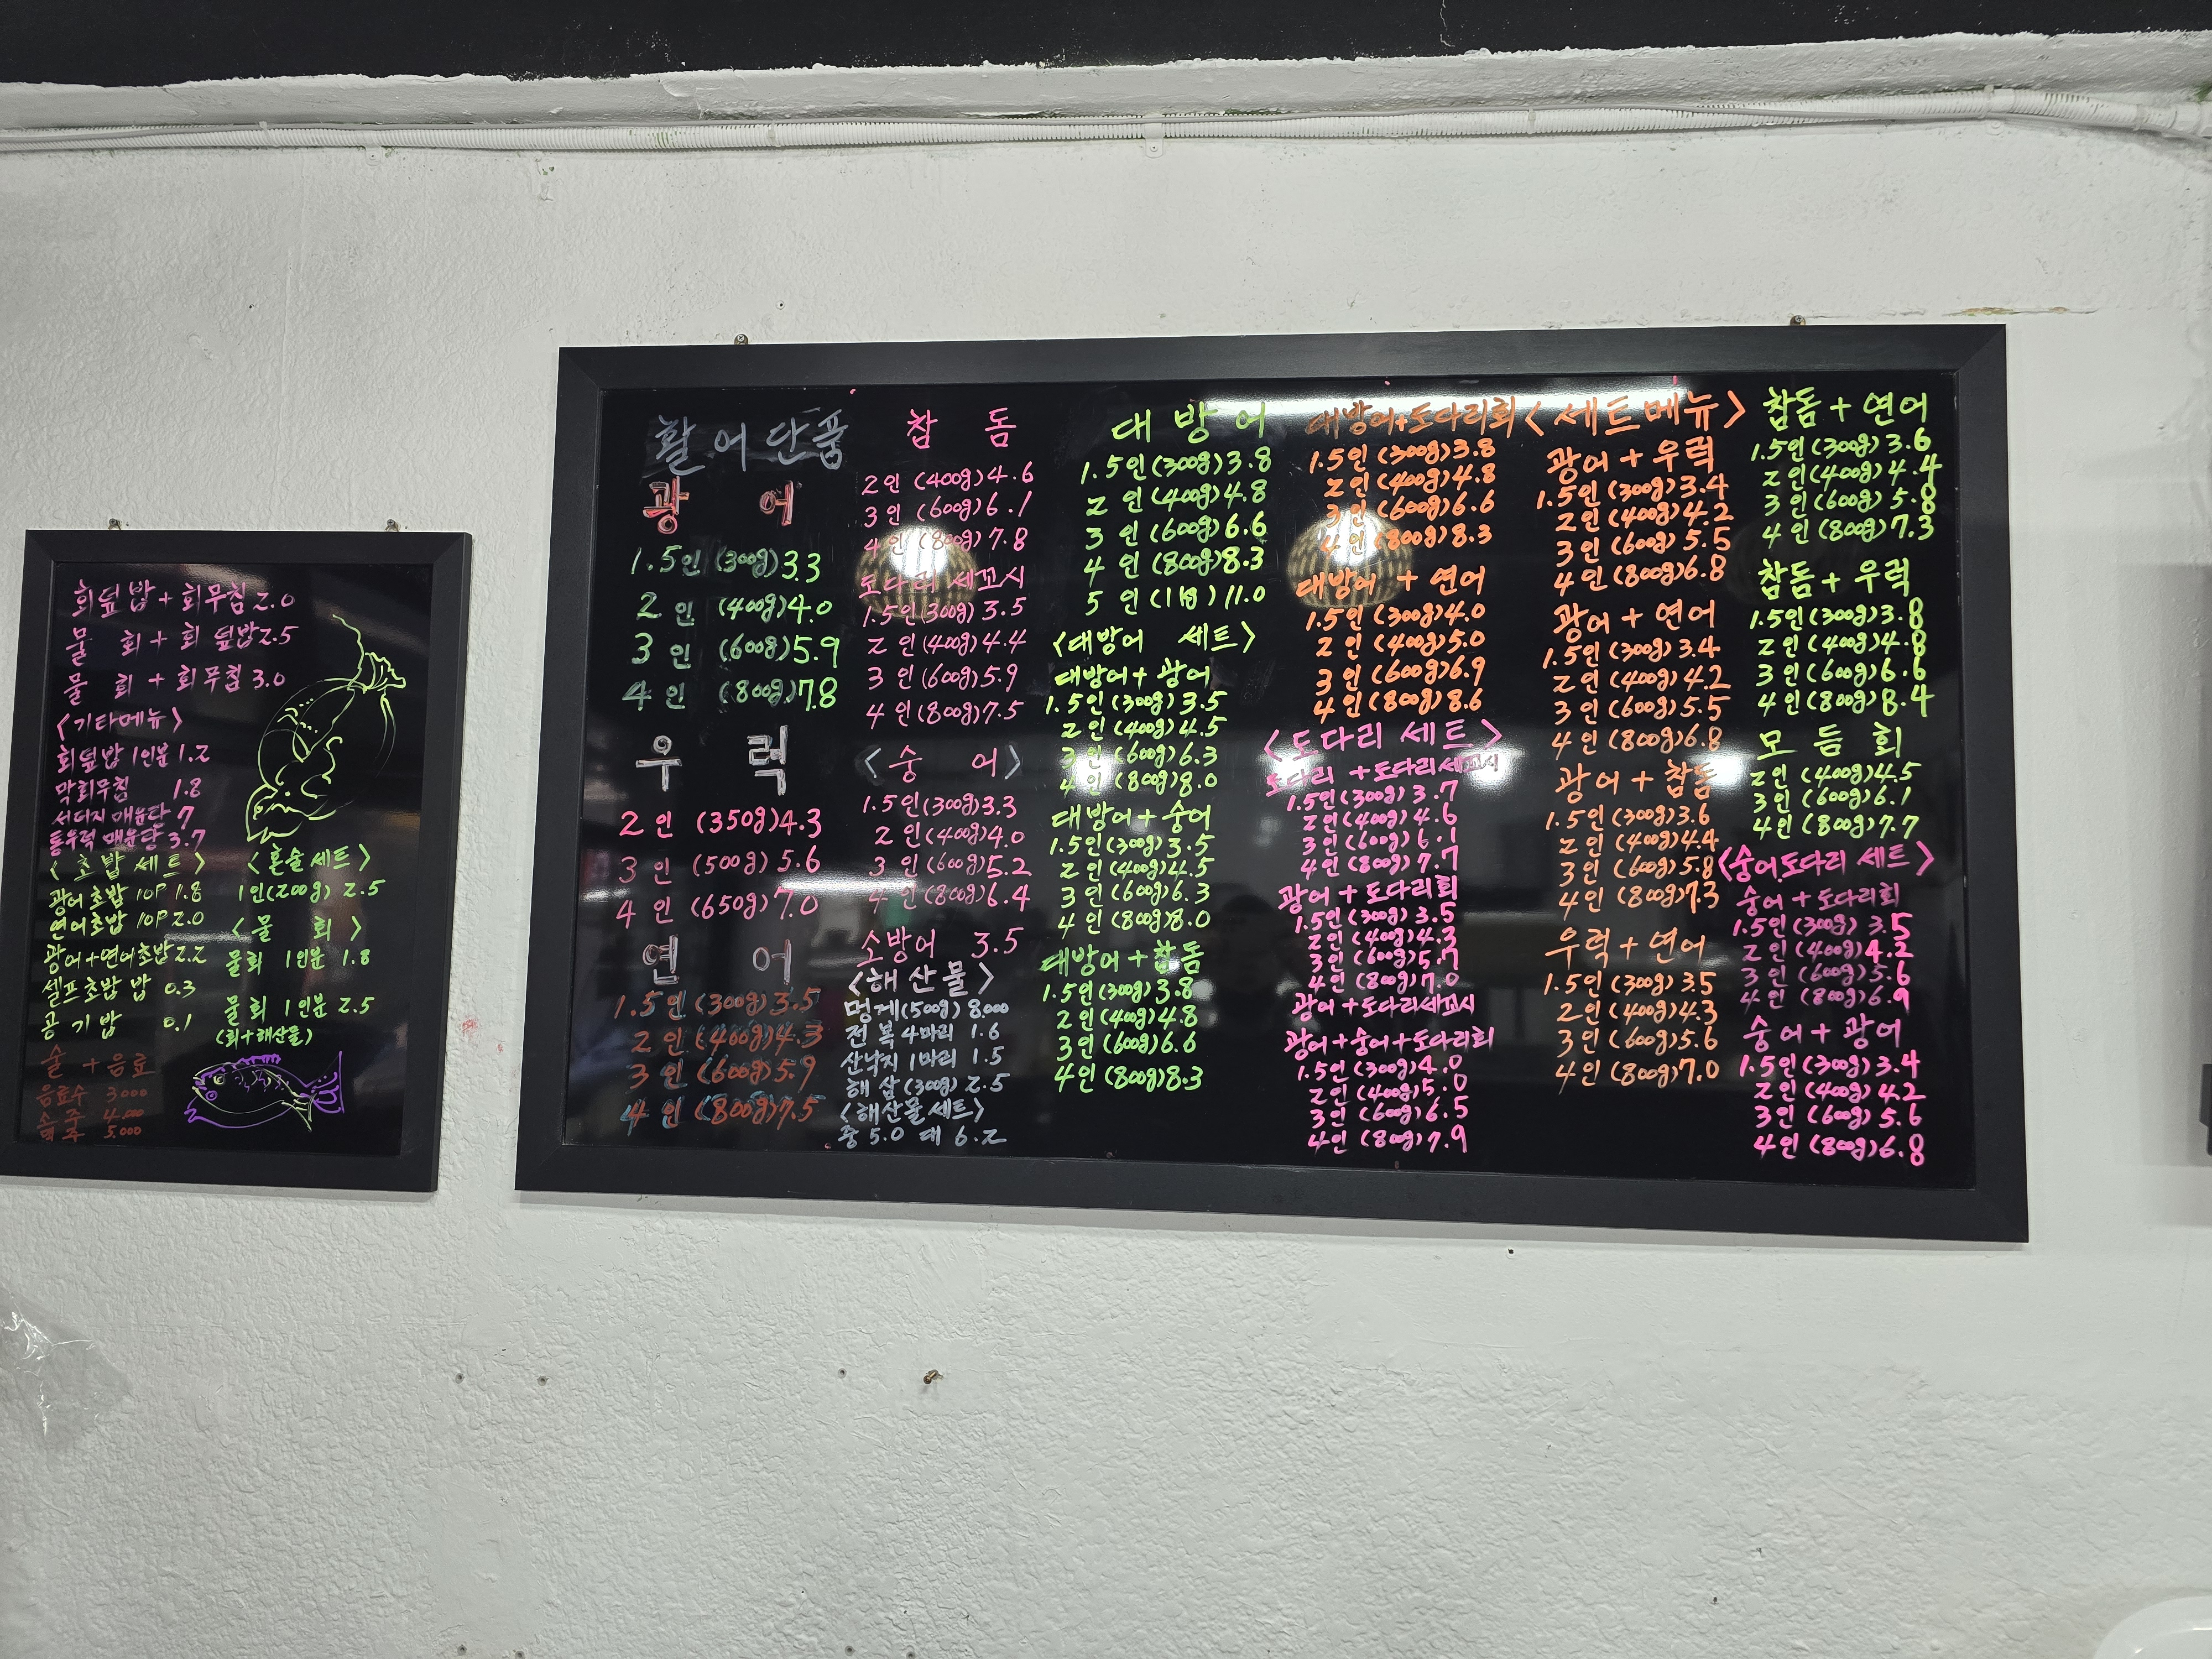 회덮밥+회무침 2.0
물 회+회 덮밥2.5
물 회+회무침 3.0
<기타메뉴>
회덮밥 1인분 1.2
막회무침 1.8
서더지 매운탕 7
통우럭 매운탕 3.7
<초밥세트>
광어초밥 10P 1.8
연어초밥 10P 2.0
광어+연어초밥2.2
셀프초밥 밥 0.3
공기밥 0.1
술 + 음료
음료수 3000
소주 4.000
맥주 5.000
<혼술세트>
1인(200g) 2.5
<물 회>
물회 1인분 1.8
물회 1인분 2.5
(회+해산물)
활어단품
광 어
1.5인 (300g)3.3
2인 (400g)4.0
3인 (600g)5.9
4인 (800g)7.8
우 럭
2인 (350g)4.3
3인 (500g)5.6
4인 (650g)7.0
연 어
1.5인(300g)3.5
2인(400g)4.3
3인(600g)5.9
4인(800g)7.5
참 돔
2인 (400g)4.6
3인 (600g)6.1
4인 (800g)7.8
도다리 세꼬시
1.5인(300g) 3.5
2인(400g)4.4
3인(600g)5.9
4인(800g)7.5
<숭 어>
1.5인(300g)3.3
2인(400g)4.0
3인(600g)5.2
4인(800g)6.4
소방어 3.5
<해산물>
멍게(500g) 8,000
전복4마리 1.6
산낙지1마리 1.5
해삼(300g) 2.5
<해산물세트>
중 5.0 대 6.2
대 방 어
1.5인(300g)3.8
2인(400g)4.8
3인(600g)6.6
4인(800g)8.3
5인(1kg)11.0
<대방어 세트>
대방어+광어
1.5인(300g)3.5
2인(400g)4.5
3인(600g)6.3
4인(800g)8.0
대방어+숭어
1.5인(300g)3.5
2인(400g)4.5
3인(600g)6.3
4인(800g)8.0
대방어+참돔
1.5인(300g)3.8
2인(400g)4.8
3인(600g)6.6
4인(800g)8.3
대방어+도다리회
1.5인(300g)3.8
2인(400g)4.8
3인(600g)6.6
4인(800g)8.3
대방어 + 연어
1.5인(300g)4.0
2인(400g)5.0
3인(600g)6.9
4인(800g)8.6
<도다리 세트>
도다리 +도다리세꼬시
1.5인(300g) 3.7
2인(400g) 4.6
3인(600g) 6.1
4인(800g)7.7
광어+도다리회
1.5인(300g) 3.5
2인(400g)4.3
3인(600g)5.7
4인(800g)7.0
광어+도다리세꼬시
광어+숭어+도다리회
1.5인(300g)4.0
2인(400g)5.0
3인(600g)6.5
4인(800g)7.9
<세트메뉴>
광어+우럭
1.5인(300g)3.4
2인(400g)4.2
3인(600g)5.5
4인(800g)6.8
광어+연어
1.5인(300g)3.4
2인(400g)4.2
3인(600g)5.5
4인(800g)6.8
광어+참돔
1.5인(300g)3.6
2인(400g)4.4
3인(600g)5.8
4인(800g)7.3
우럭+연어
1.5인(300g)3.5
2인(400g)4.3
3인(600g)5.6
4인(800g)7.0
참돔+연어
1.5인(300g)3.6
2인(400g)4.4
3인(600g)5.8
4인(800g)7.3
참돔+우럭
1.5인(300g)3.8
2인(400g)4.8
3인(600g)6.6
4인(800g)8.4
모 듬 회
2인(400g)4.5
3인(600g)6.1
4인(800g)7.7
<숭어.도다리 세트>
숭어+도다리회
1.5인(300g) 3.5
2인(400g)4.2
3인(600g)5.6
4인(800g)6.9
숭어+광어
1.5인(300g)3.4
2인(400g)4.2
3인(600g)5.6
4인(800g)6.8